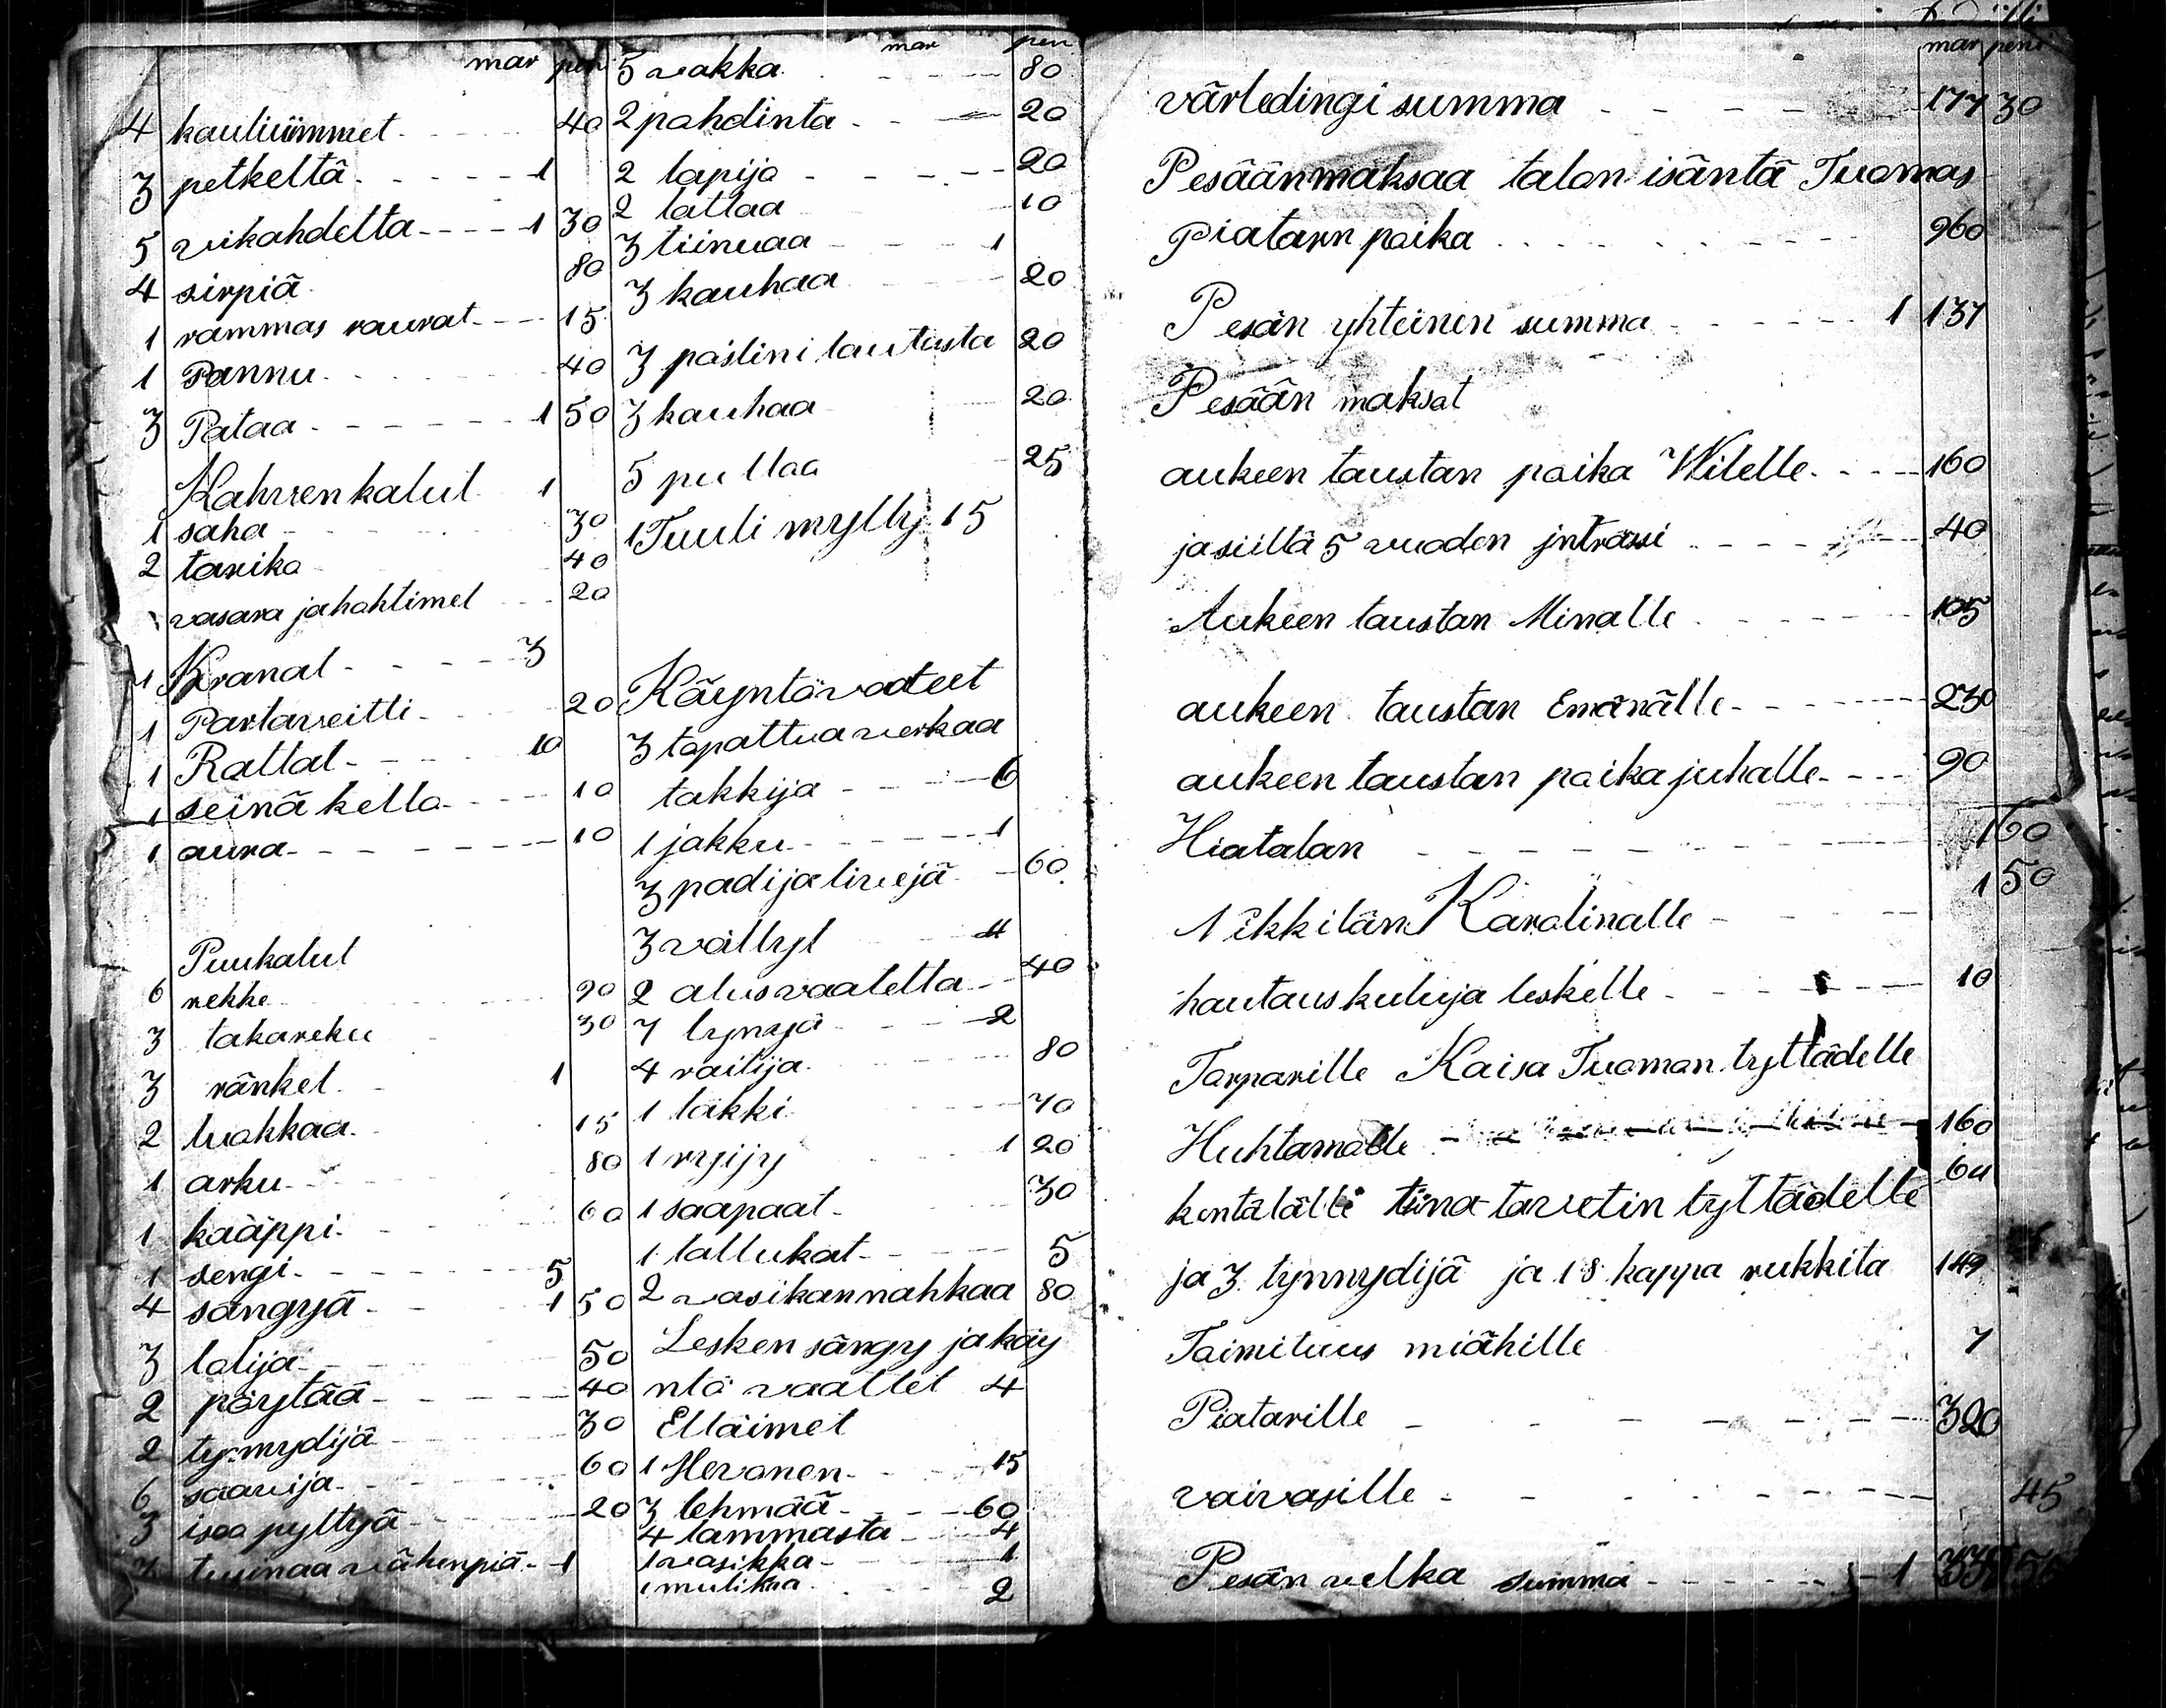 mar pen
4 kauliummet 40
3 petkeltä 1
5 vikahdetta 1 30
4 sirpiä 80
1 rammas rauvat 15
1 Pannu 40
3 Pataa 1 50
Kahvenkalut 1
1 saha 30
2 tarika 40
vasara ja hohtimet 20
1 Kranat 3
1 Partaveitti 20
1 Rattat 10
1 seinä kello 10
1 aura 10
Puukalut
6 rekke 90
3 takareku 30
3 ränket 1
2 luokkaa 15
1 arku 80
1 kaäppi 60
1 sengi 5
4 sängyä 1 50
3 lolija 50
2 pöytää 40
2 tynnydijä 30
6 saavija 60
3 isoa pyttyä 20
tusinaa vähenpiä 1
mar pen
5 vakka 80
2 pohdinta 20
2 lapijo 20
2 lattaa 10
3 tiinuaa 1
3 kauhaa 20
3 päslini lautasta 20
3 kauhaa 20
5 pullaa 25
1 Tuuli mylly 15
Käyntövooteet
3 topattua verkaa
takkija 6
1 jakku 1
3 padija livejä 60
3 vällyt 4
2 alusvaatetta 40
7 lynyjä 2
4 raitija 80
1 lakki 70
1 ryijy 1 20
1 saapaat 30
1 tallukat 5
2 vasikannahkaa 80
Lesken sängy ja käy
ntö vaattet 4
Elläimet
1 Hevonen 15
3 lehmää 60
4 lammasta 4
1 vasikka 1
1 mulikaa 2
mar peni
värledingi summa 177 30
Pesäänmaksaa talon isäntä Tuomas
Piatarn poika 960
Pesän yhteinen summa 1 137
Pesään maksat
aukeen taustan poika Wilelle 160
ja siittä 5 vuoden jntrasi 40
Aukeen taustan Minalle 105
aukeen taustan Emänälle 230
aukeen taustan poika juhalle 90
Hiatalan 160
Nikkilän Karolinalle 150
hautauskuluja leskelle 10
Torparille Kaisa Tuoman tyttädelle
Huhtamalle 160
kontalälle tina tarvetin tyttädelle 64
ja 3 tynnydijä ja 18 kappa rukkita 149
Toimituus miähille 7
Piatarille 320
vaivasille 45
Pesän velka summa 1